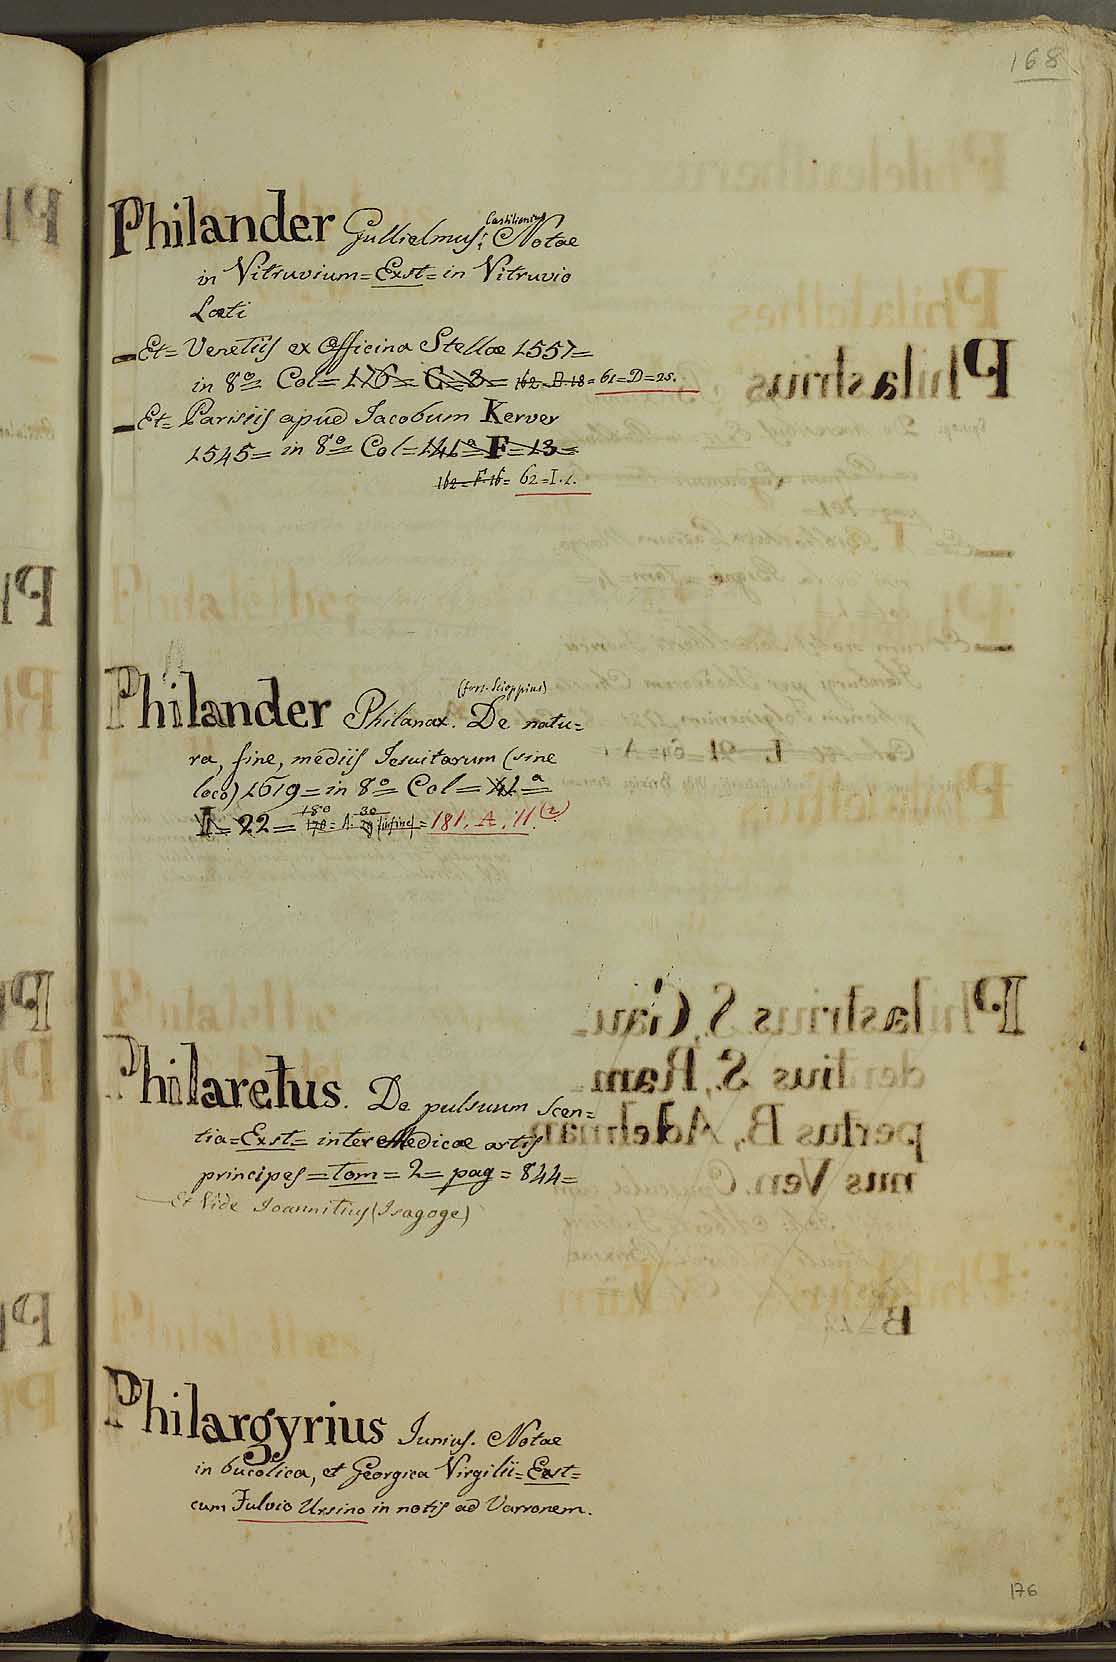 168
Philander Gullielmus; Castilionius Notae
in Vitruvium = Exst = in Vitruvio
Laeti
Et = Venetiis ex Officina Stellae 1557 =
in 8º = Col = 176 = G = 3 = 162 = D 18 = 61 = D = 25.
Et = Parisiis apud Jacobum Kerver
1545 = in 8º = Col = 141ª = F = 13 =
162 = F 16 = 62 = I. 1.
Philander Philanax. (fors. Scioppius) De natu=
ra, fine, mediis Jesuitarum (sine
loco) 1619 = in 8º = Col = 41ª =
I = 22 = 181. A. 11. (2)
Philaretus. De pulsuum scen=
tia = Exst = inter Medicae artis
principes = tom = 2 = pag = 844 =
Et Vide Joannitius (Isagoge)
Philargyrius Junius. Notae
in bucolica, et Georgica Virgilii = Exst =
cum Fulvio Ursino in notis ad Varronem.
176